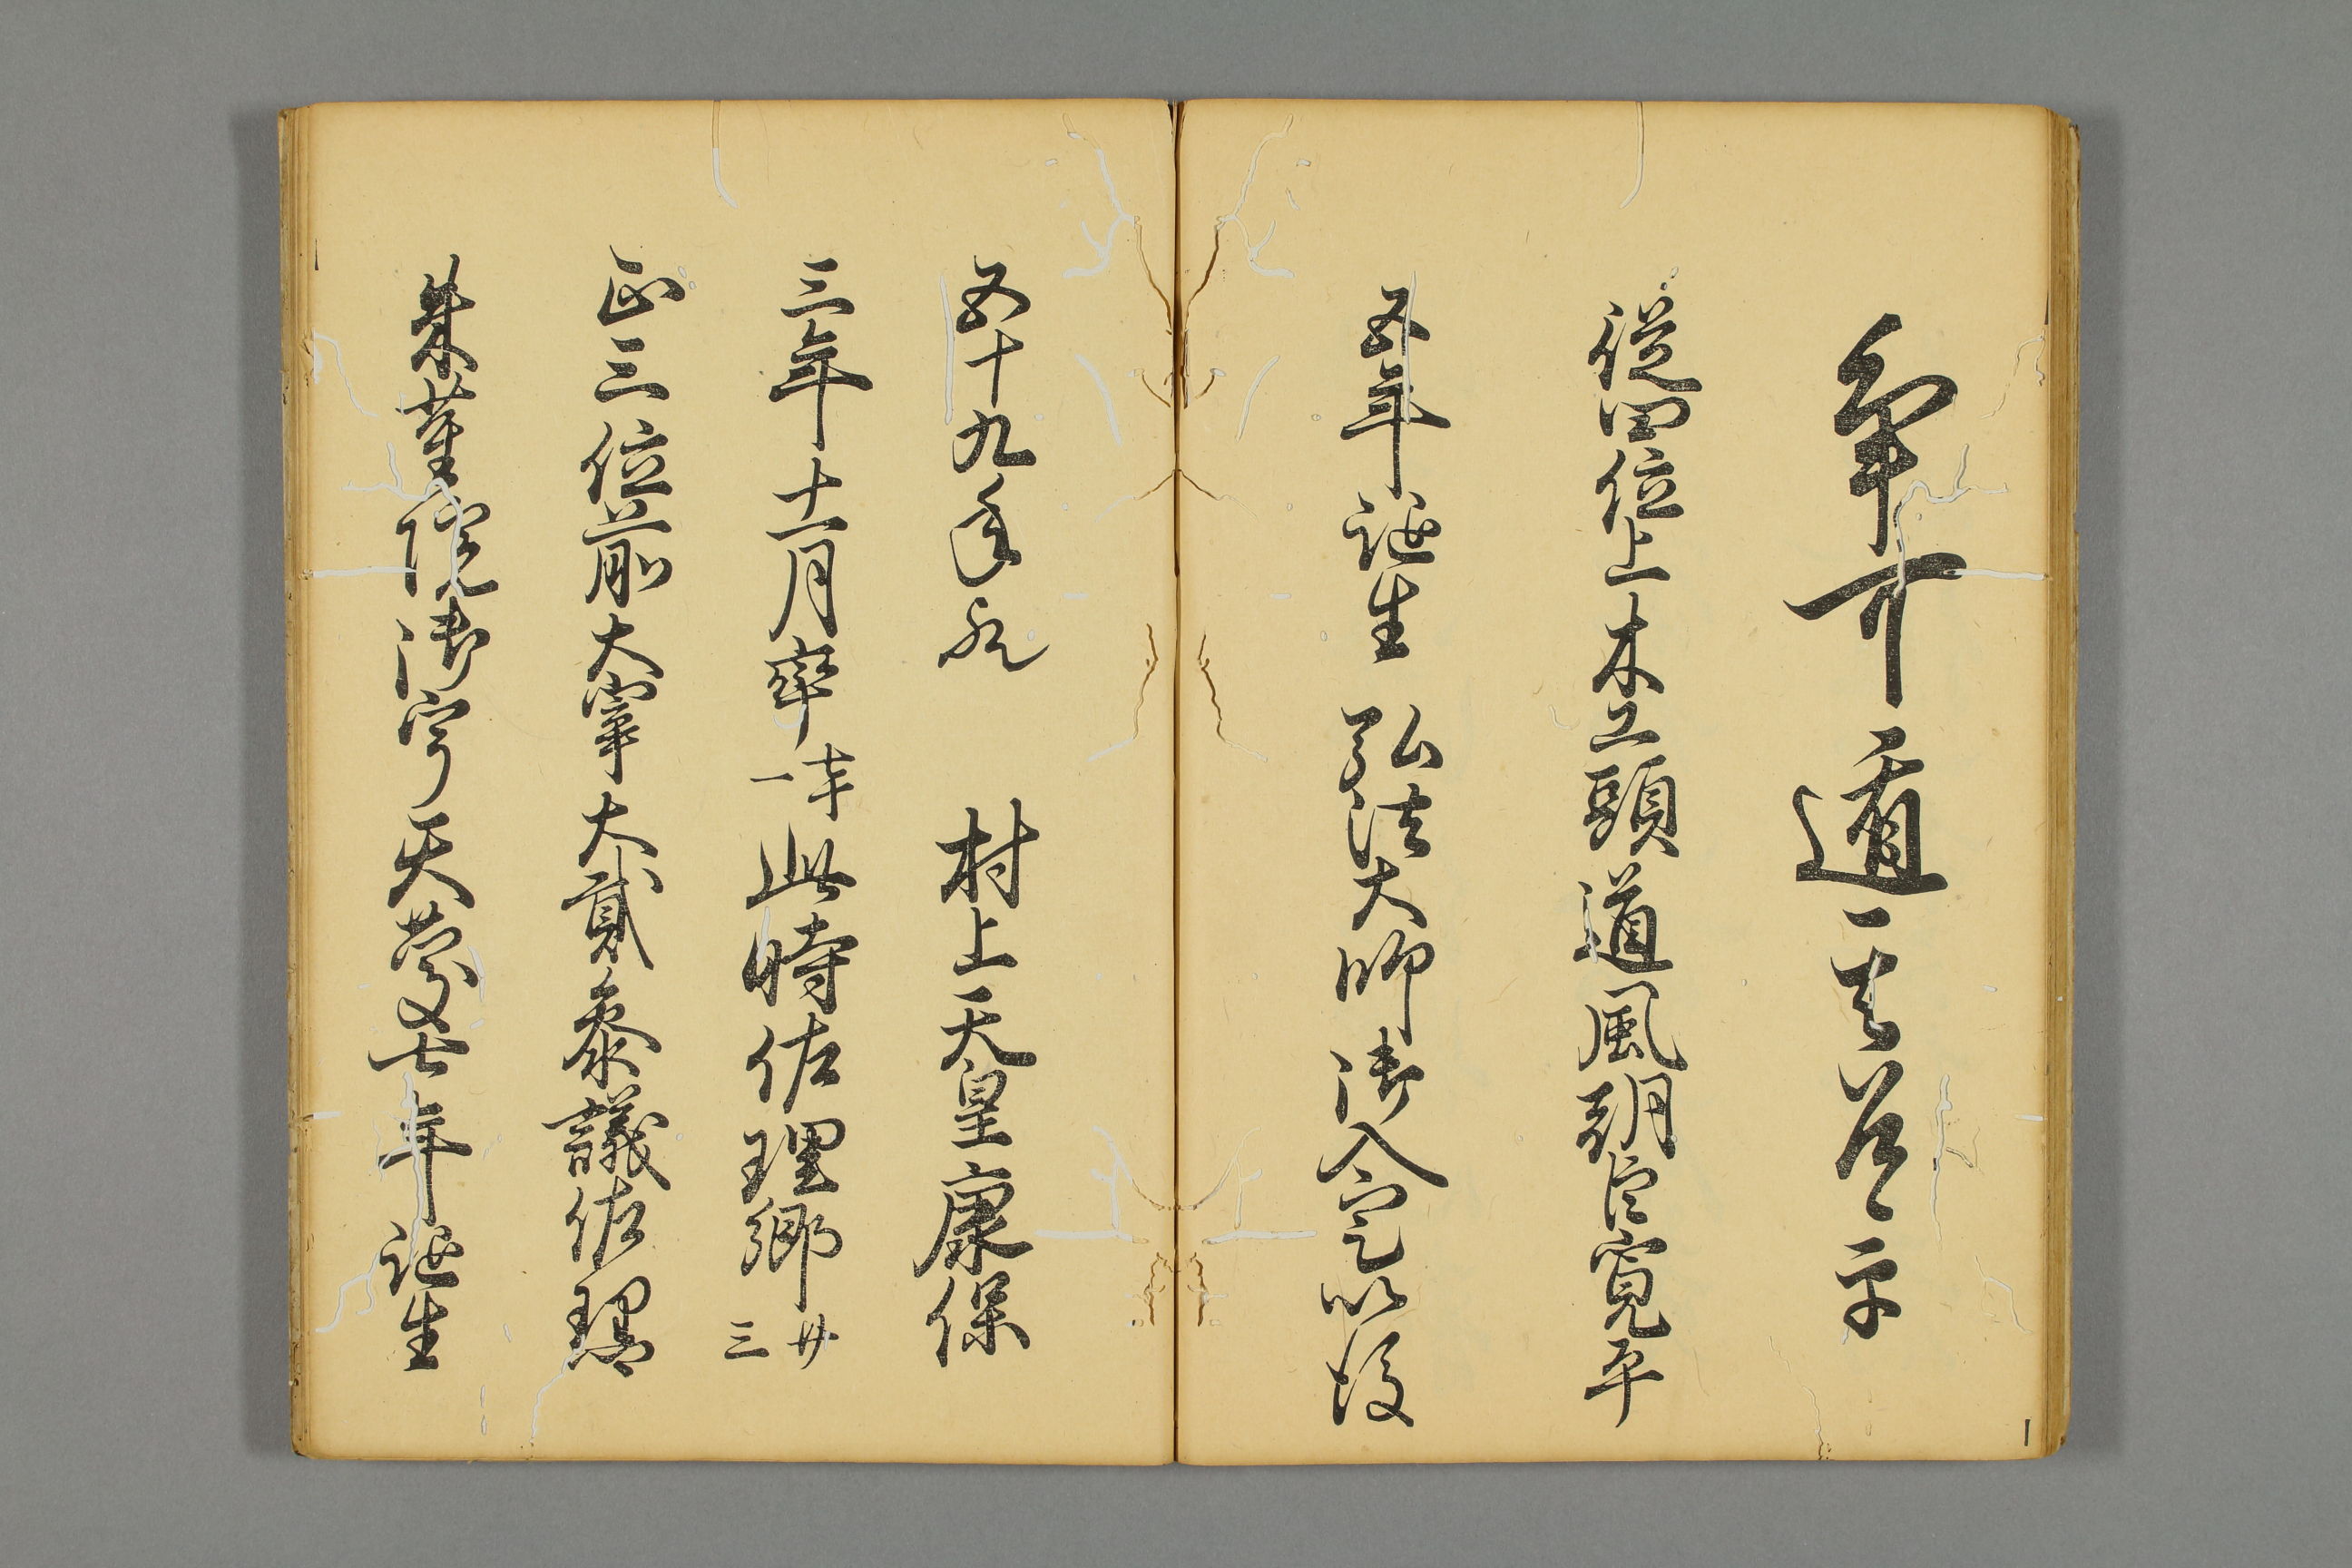 筆下道
従四位上木工頭道風朝臣寛平
五年誕生 弘法大師御入定以後
五十九年 村上天皇康保
三年十一月卒七十一此時佐理卿廿三
正三位前大宰大貳参議佐理
朱雀院御宇天慶七年誕生